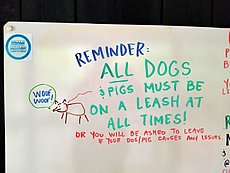 REMINDER:
ALL DOGS
& PIGS MUST BE
ON A LEASH AT
ALL TIMES!
WOOF,
WOOF!
OR YOU WILL BE ASKED TO LEAVE
IF YOUR DOG/PIG CAUSES ANY ISSUES.